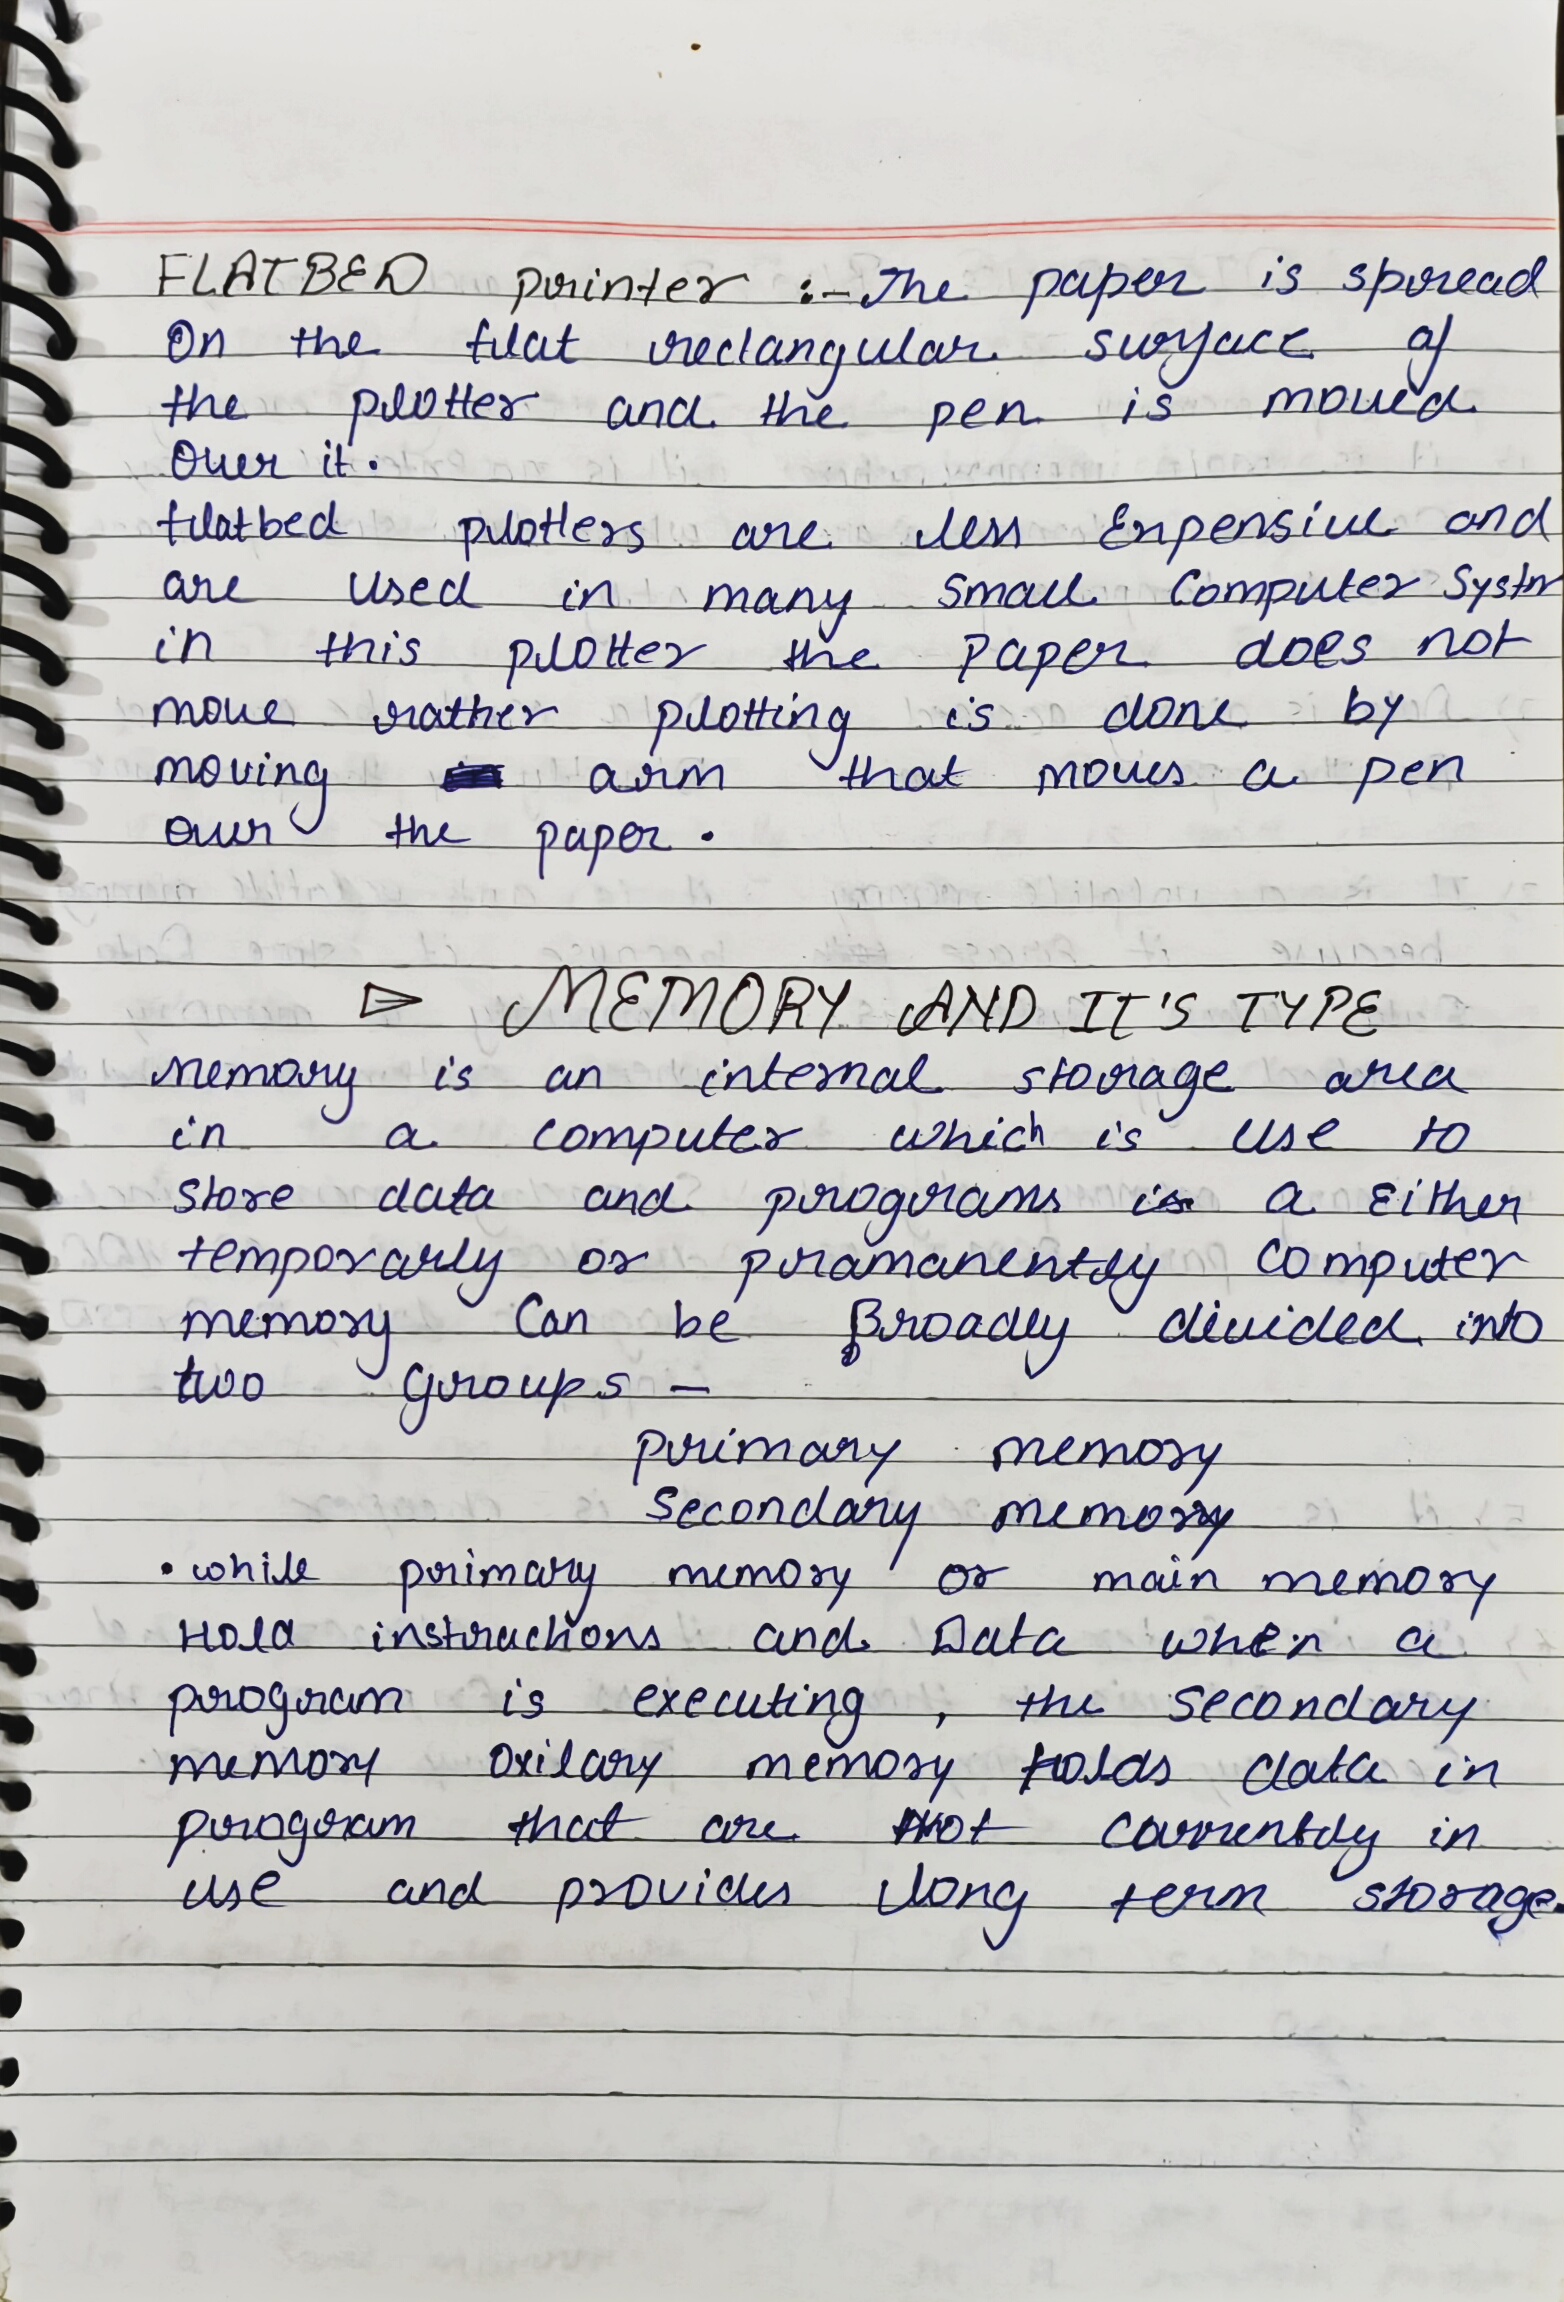 FLATBED printer :- The paper is spread
On the flat rectangular surface of
the plotter and the pen is moved
Over it.
flatbed plotters are less Expensive and
are used in many Small Computer Systm
in this plotter the paper does not
move rather plotting is done by
moving arm that moves a pen
over the paper.
▷ MEMORY AND IT'S TYPE
Memory is an internal storage area
in a computer which is use to
store data and programs is a Either
temporarly or pramanently computer
memory Can be Broadly divided into
two Groups -
primary memory
Secondary memory
• while primary memory or main memory
Hold instructions and Data when a
program is executing, the secondary
memory oxilary memory Holds data in
program that are Not currently in
use and provides long term storage.